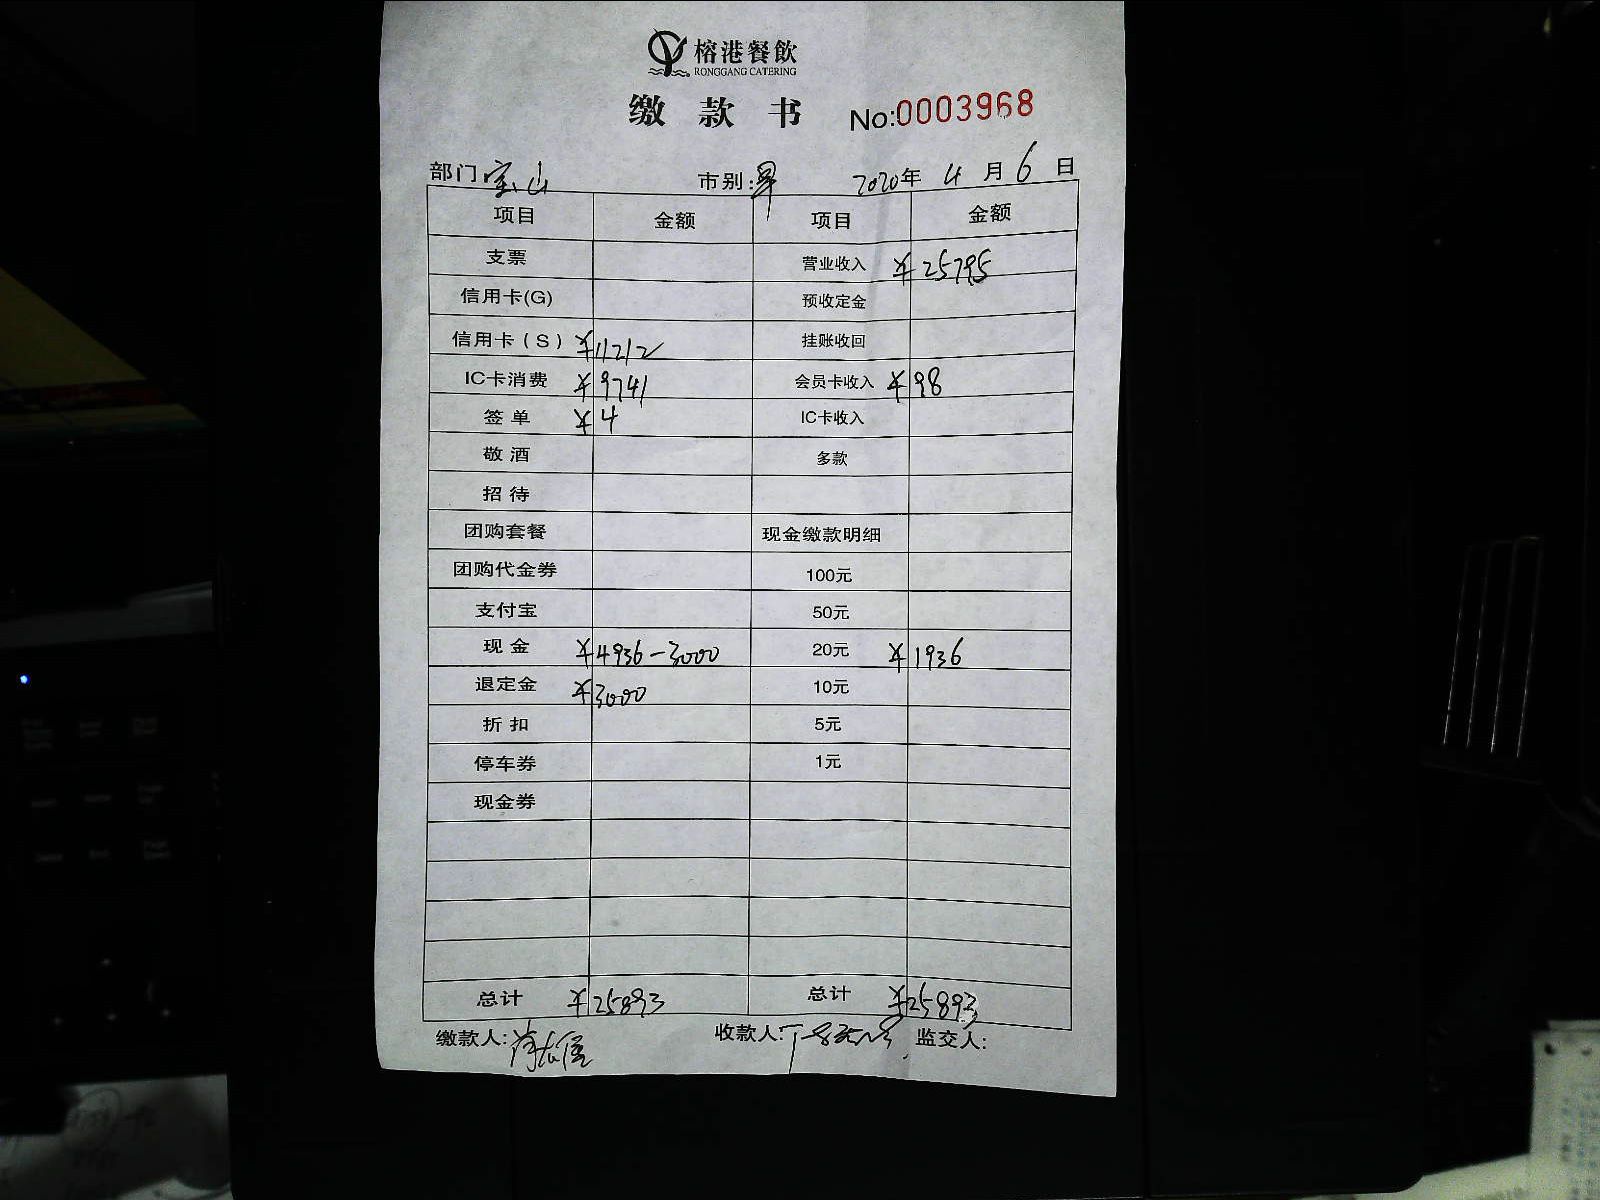 榕港餐飲
RONGGANG CATERING
缴款书 No:0003968
部门 宝山 市别:早 2020年 4 月 6 日
项目 金额 项目 金额
支票 营业收入 ¥25795
信用卡(G) 预收定金
信用卡(S) ¥11212 挂账收回
IC卡消费 ¥9741 会员卡收入 ¥98
签单 ¥4 IC卡收入
敬酒 多款
招待
团购套餐 现金缴款明细
团购代金券 100元
支付宝 50元
现金 ¥4936-3000 20元 ¥1936
退定金 ¥3000 10元
折扣 5元
停车券 1元
现金券
总计 ¥25893 总计 ¥25893
缴款人: 收款人: 监交人: